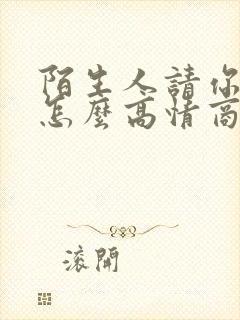 陌生人請你
怎麼高情商
滾開